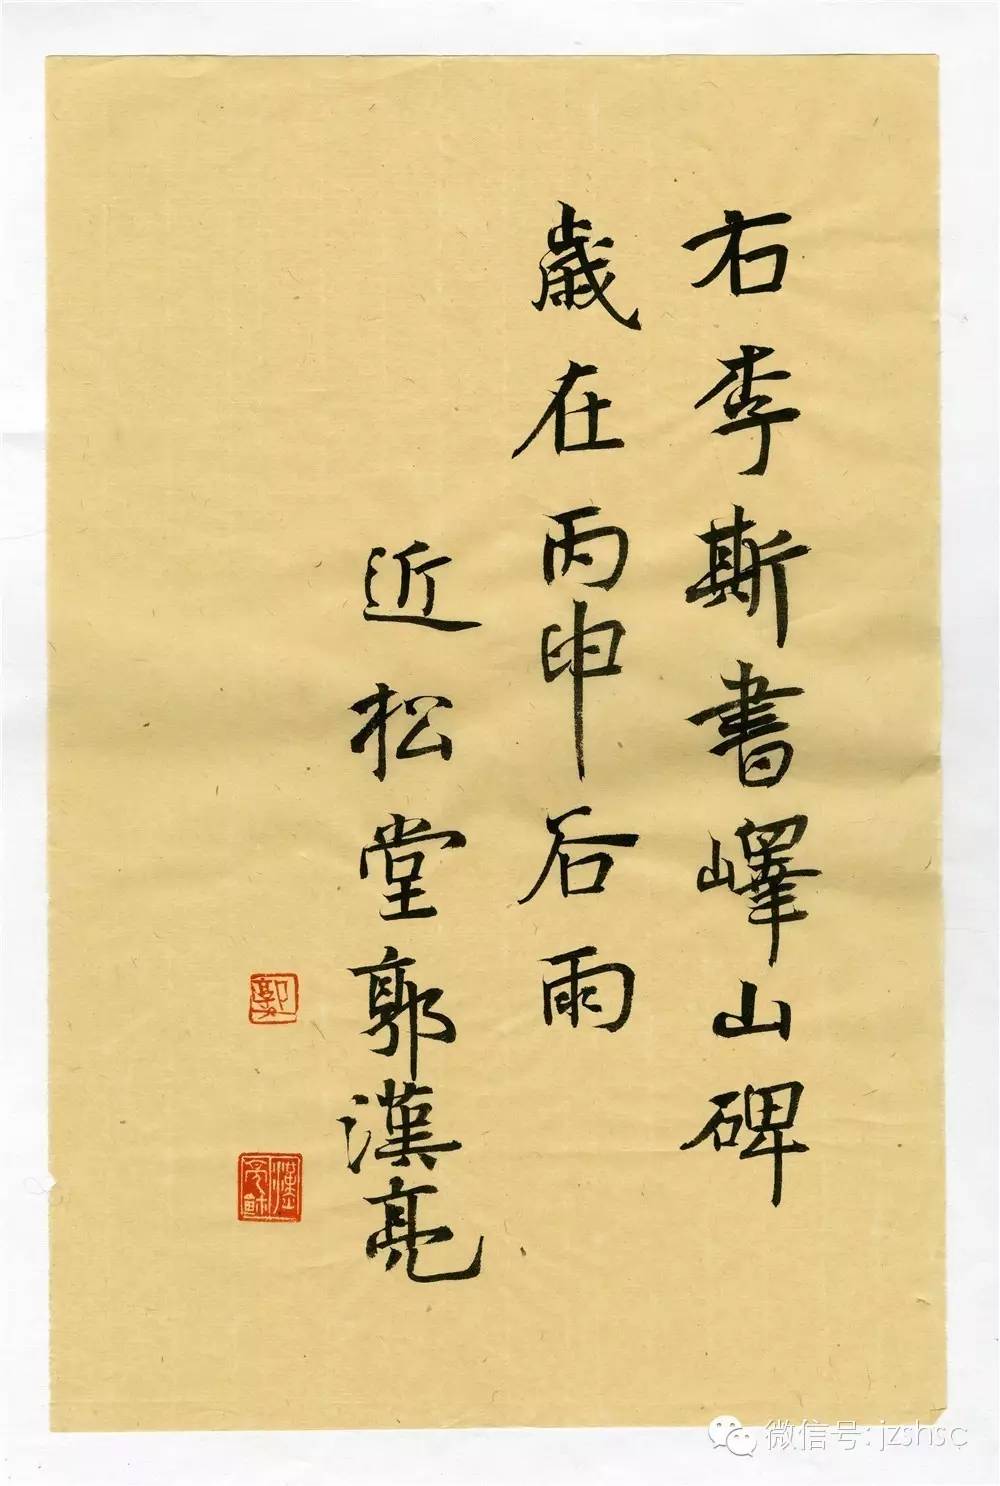 右李斯書嶧山碑
歲在丙申谷雨
近松堂郭漢亮
微信号: jzshsc